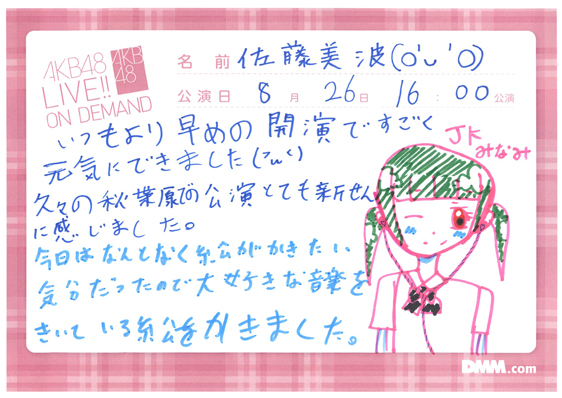 AKB48
LIVE!!
ON DEMAND
AKB
48
名前 佐藤美波(o'ᴗ'o)
公演日 8月26日 16:00公演
いつもより早めの開演ですごく
元気にできました(
久々の秋葉原での公演とても新せん
に感じました。
今日はなんとなく絵がかきたい
気分だったので大好きな音楽を
きいている絵をかきました。
JK
みなみ
DMM.com